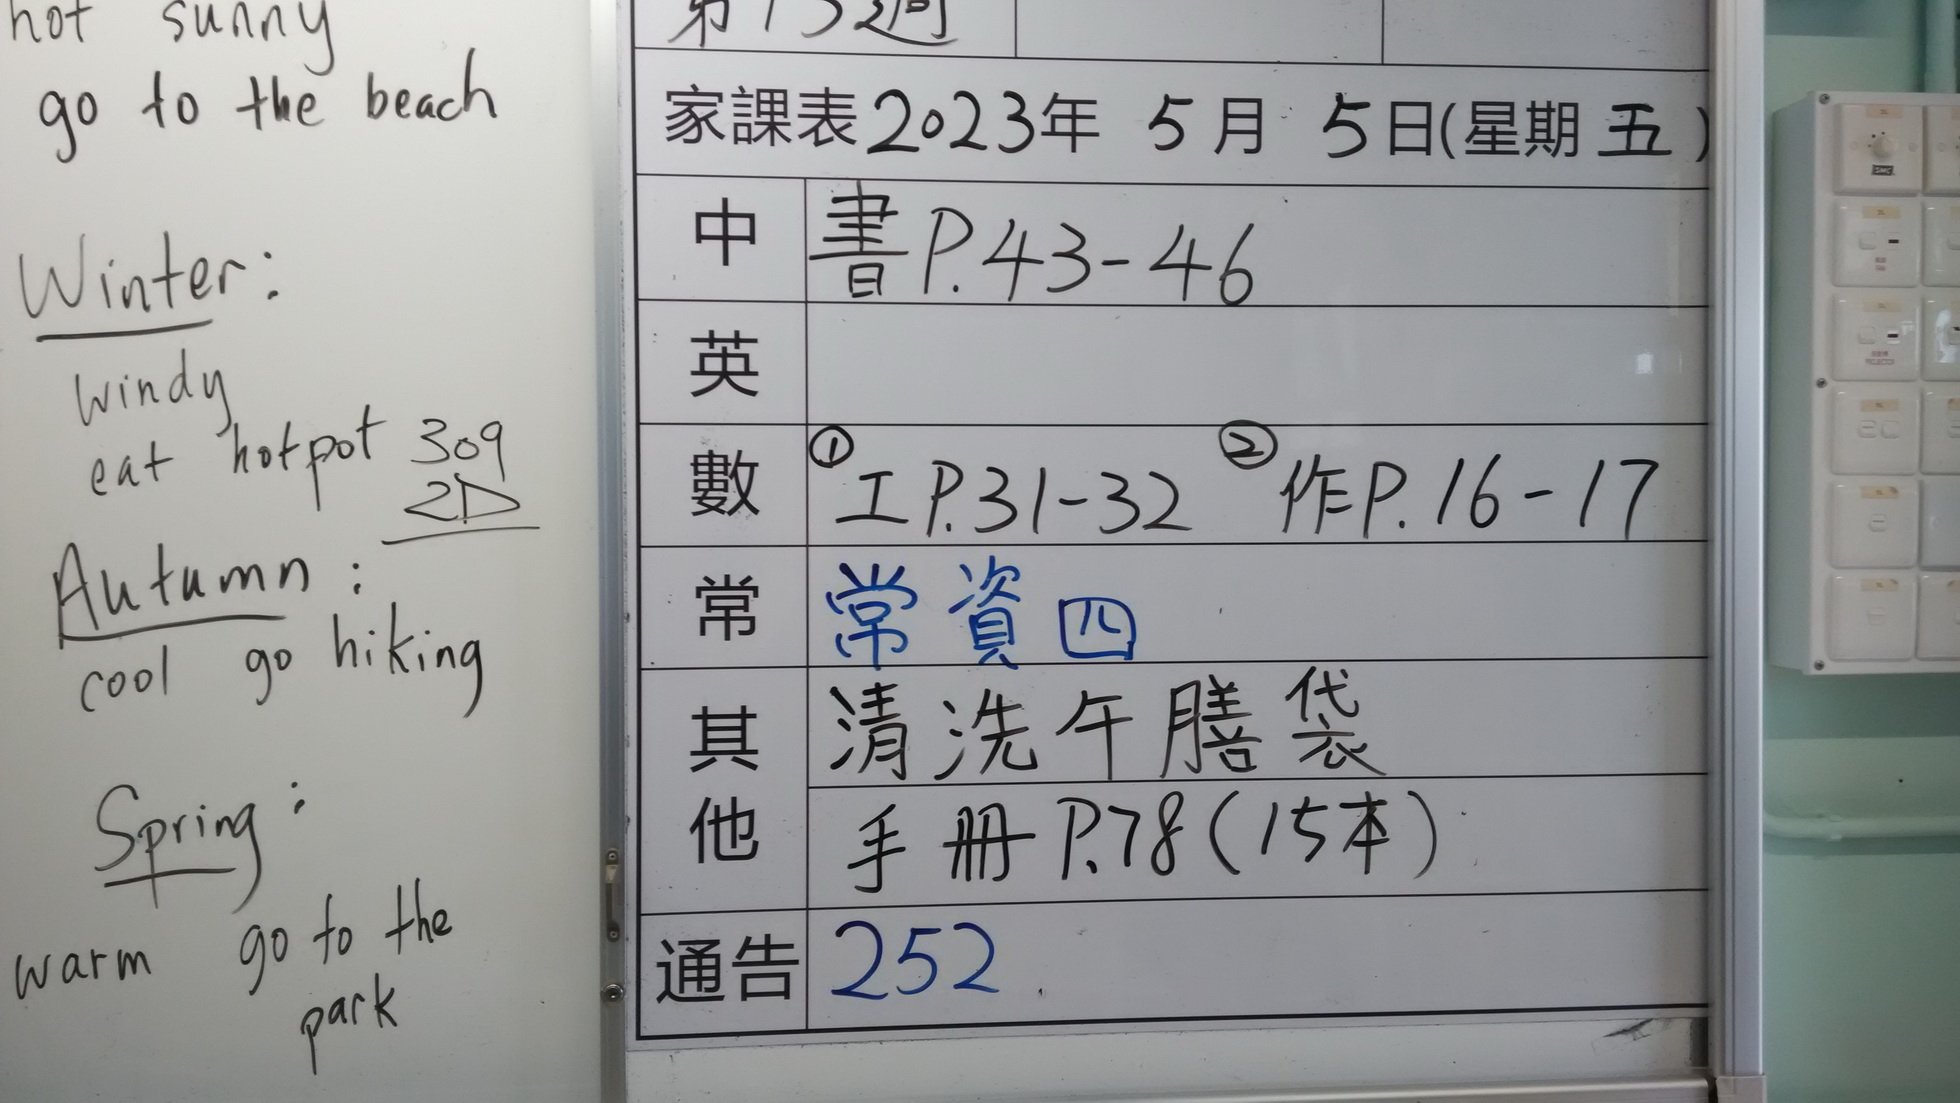 hot sunny
go to the beach
Winter:
windy
eat hotpot
309
2D
Autumn:
cool go hiking
Spring:
warm go to the
park
家課表2023年 5月 5日(星期五)
中 書P.43-46
英
數 ①工P.31-32 ②作P.16-17
常 常資四
其他 清洗午膳袋
手冊P.78(15本)
通告 252